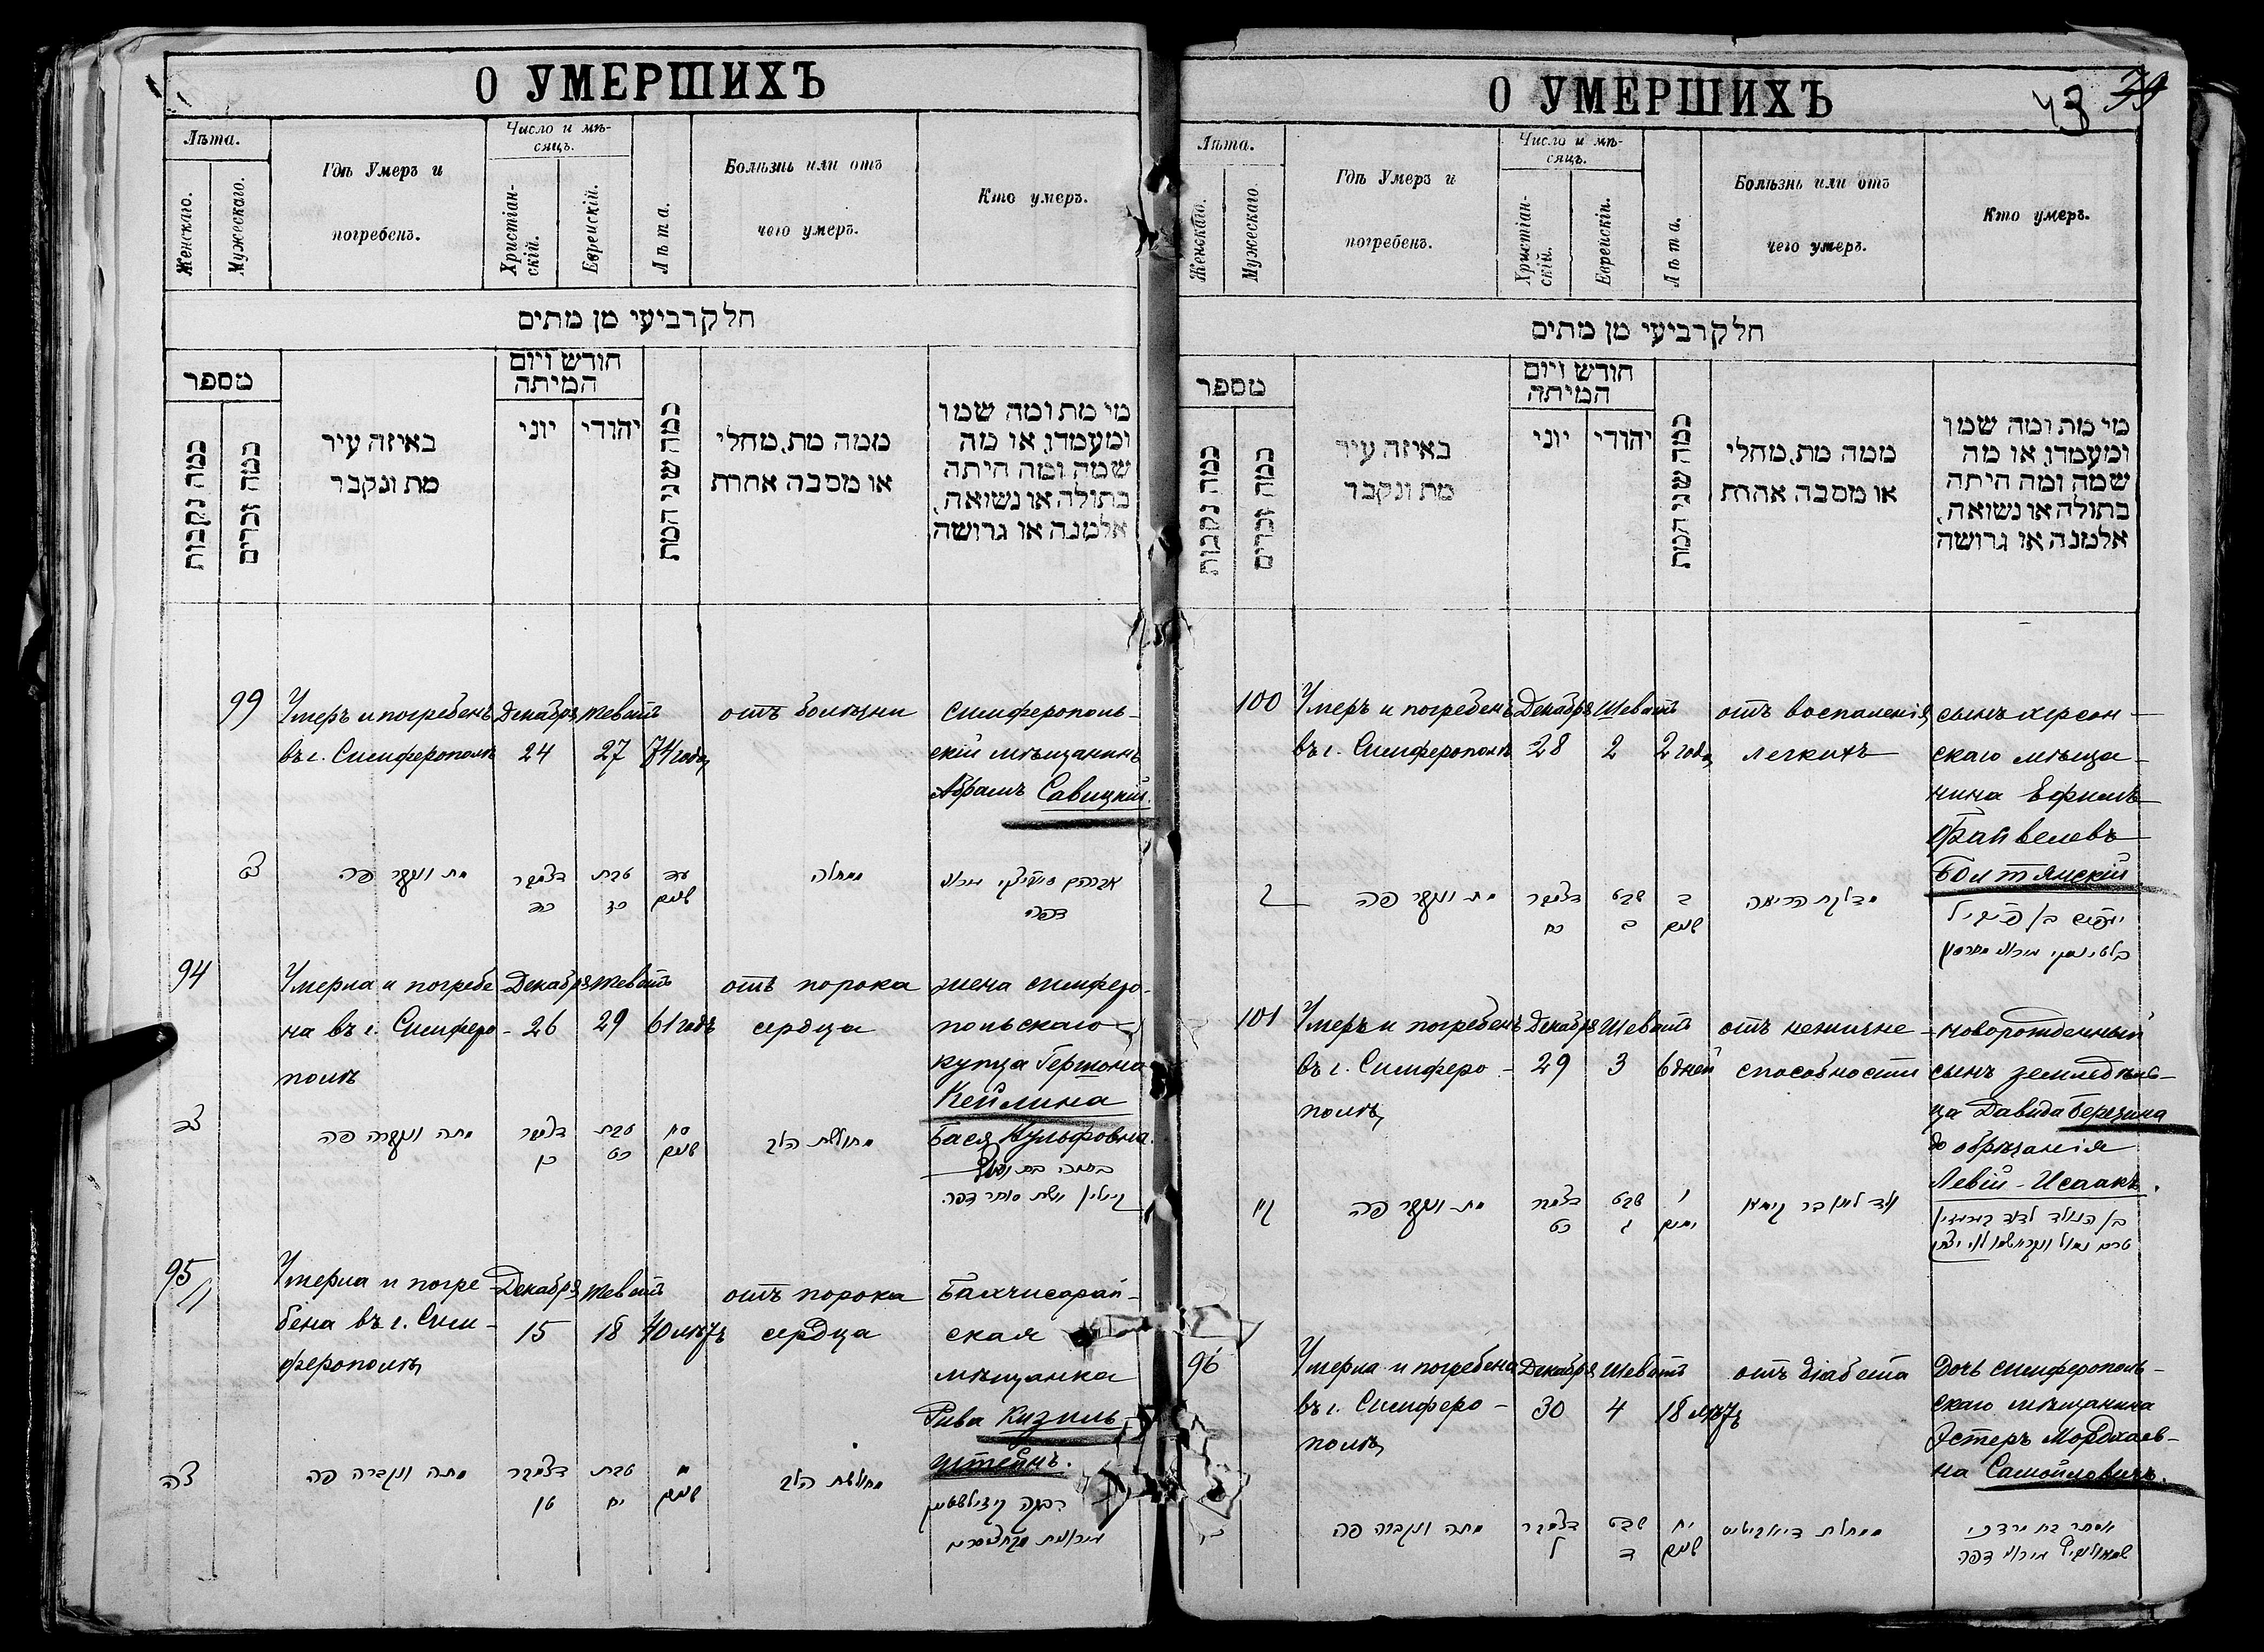 О УМЕРШИХЪ
Лѣта.
Женскаго.
Мужескаго.
Гдѣ Умеръ и
погребенъ.
Число и мѣ-
сяцъ.
Христіан-
скій.
Еврейскій.
Лѣта.
Болѣзнь или отъ
чего умеръ.
Кто умеръ.
חלק רביעי מן מתים
מספר
כמה נקבות
כמה זכרים
באיזה עיר
מת ונקבר
חודש ויום
המיתה
יוני
יהודי
כמה שני המת
ממה מת, מחלי
או מסבה אחרת
מי מת ומה שמו
ומעמדו, או מה
שמה ומה היתה
בתולה או נשואה,
אלמנה או גרושה
99
Умеръ и погребенъ
въ г. Симферополѣ
Декабря
24
Теватъ
27
74 года
отъ болѣзни
симферополь-
скій мѣщанинъ
Абрамъ Савицкій.
מת ונקבר פה
דצמבר
כד
טבת
כז
עד
שנים
מחלה
דפה
94
Умерла и погребе
на въ г. Симферо-
полѣ
Декабря
26
Теватъ
29
61 годъ
отъ порока
сердца
жена симферо-
польскаго
купца Гершона
Кейлина
Бася Вульфовна.
צד
מתה ונקברה פה
דצמבר
כו
טבת
כט
סא
שנים
מחולשת הלב
95
Умерла и погре-
бена въ г. Сим-
ферополѣ
Декабря
15
Теватъ
18
40 лѣтъ
отъ порока
сердца
Бахчисарай-
ская
мѣщанка
Рива Кизиль
штейнъ.
צה
מתה ונקברה פה
דצמבר
טו
טבת
יח
מ
שנים
מחולשת הלב
רבקה קיזילשטיין
О УМЕРШИХЪ
43 39
Лѣта.
Женскаго.
Мужескаго.
Гдѣ Умеръ и
погребенъ.
Число и мѣ-
сяцъ.
Христіан-
скій.
Еврейскій.
Лѣта.
Болѣзнь или отъ
чего умеръ.
Кто умеръ.
חלק רביעי מן מתים
מספר
כמה נקבות
כמה זכרים
באיזה עיר
מת ונקבר
חודש ויום
המיתה
יוני
יהודי
כמה שני המת
ממה מת, מחלי
או מסבה אחרת
מי מת ומה שמו
ומעמדו, או מה
שמה ומה היתה
בתולה או נשואה,
אלמנה או גרושה
100
Умеръ и погребенъ
въ г. Симферополѣ
Декабря
28
Шеватъ
2
2 года
отъ воспаленія
легкихъ
сынъ херсон-
скаго мѣща-
нина Ефимъ
Файвелевъ
Болтянскій.
מת ונקבר פה
דצמבר
כח
שבט
ב
ב
שנים
מדלקת הריאה
101
Умеръ и погребенъ
въ г. Симферо-
полѣ
Декабря
29
Шеватъ
3
6 дней
отъ нежизне-
способности
новорожденный
сынъ земледѣль-
ца Давида Березина
до обрѣзанія
Левій-Исаакъ.
מת ונקבר פה
דצמבר
כט
שבט
ג
ו
ימים
ולד לאו בר קיימא
96
Умерла и погребена
въ г. Симферо-
полѣ
Декабря
30
Шеватъ
4
18 лѣтъ
отъ діабета
Дочь симферополь-
скаго мѣщанина
Эстеръ Мордхаев-
на Самойловичъ.
מתה ונקברה פה
דצמבר
ל
שבט
ד
יח
שנים
אסתר בת מרדכי